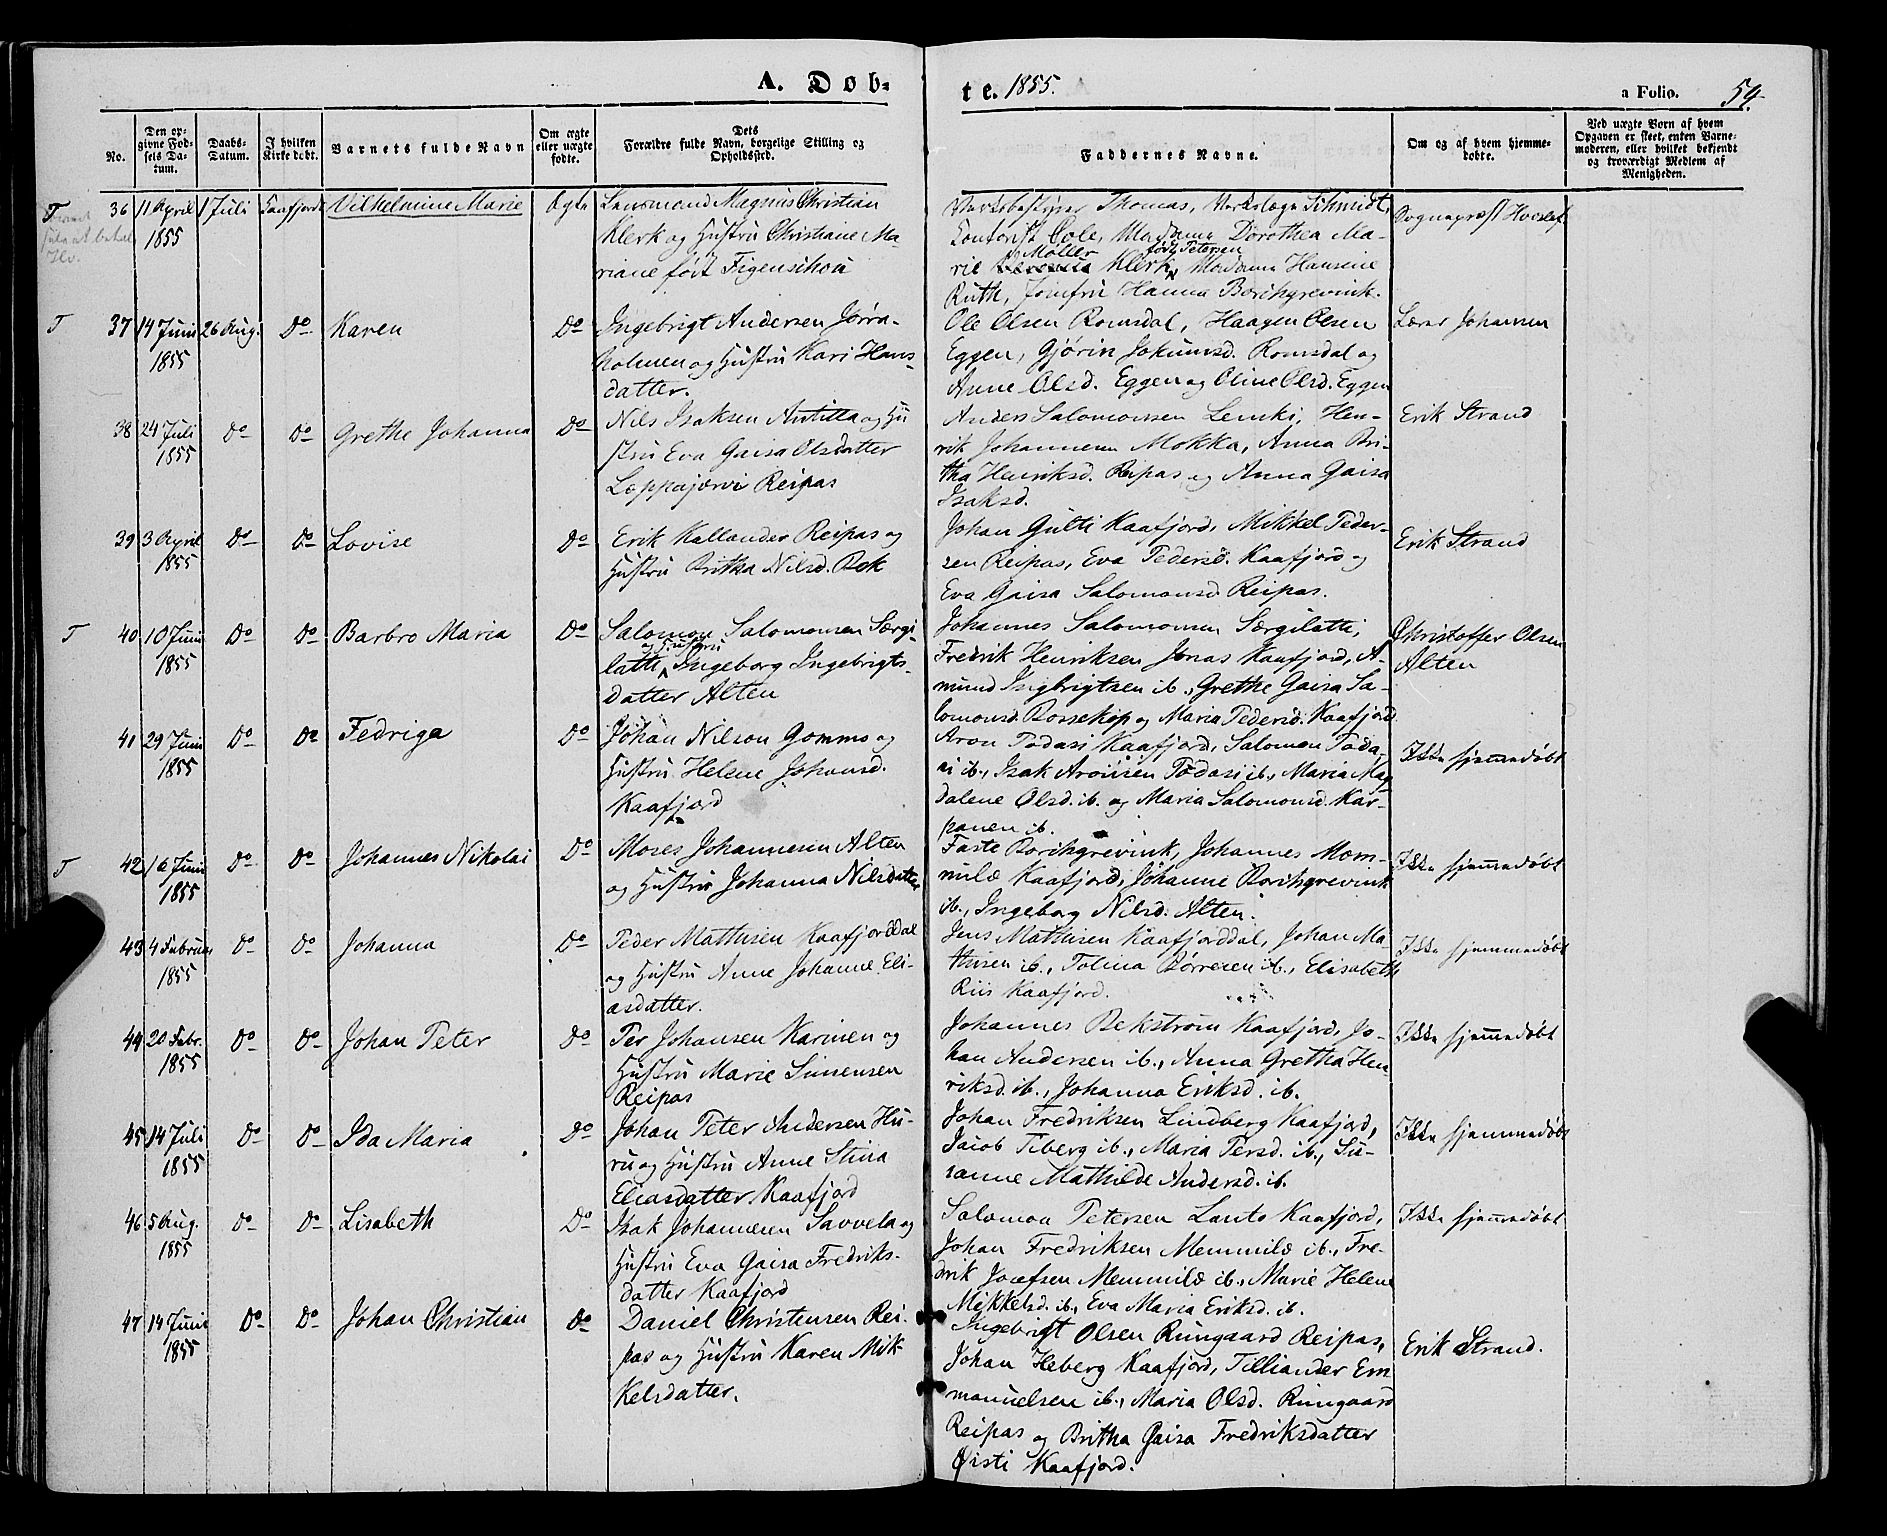 A. Døb-
te. 1855.
a Folio. 54.
No.
Den op-
givne Fød-
sels Da-
tum.
Daabs-
Datum.
I hvilken
Kirke døbt.
Barnets fulde Navn
Om ægte
eller uægte
fødte.
Dets
Forældre fulde Navn, borgelige Stilling og
Opholdssted.
Faddernes Navne.
Om og af hvem hjemme-
døbte.
Ved uægte Børn af hvem
Opgaven er skeet, enten Barne-
moderen, eller hvilket bekjendt
og troværdigt Medlem af
Menigheden.
T 36 11 April 1 Juli Kaafjord Vilhelmine Marie Ægte Lensmand Magnus Christian
1855
Klerk og Hustru Christiane Ma-
riane født Figenschou
Thomas, Schmidt,
Cole, Madame Dorothea Ma-
Møller født Petersen
rie Klerk, Madame Hansine
Ruth, Jomfru Hanna Borchgrevink.
Sognepræst Hvoslef
T 37 14 Juni 26 Aug. Do Karen Do Ingebrigt Andersen Jørra-
1855
holmen og Hustru Kari Hans-
datter.
Ole Olsen Romsdal, Haagen Olsen
Eggen, Gjørin Jokumsd. Romsdal og
Anne Olsd. Eggen og Oline Olsd. Eggen
Lærer Johansen
38 24 Juli Do Do Grethe Johanna Do Nils Isaksen Antilla og Hu
1855
stru Eva Gaisa Olsdatter
Loppajærvi Reipas
Anders Salomonsen Lemki, Hen-
rik Johannesen Mokka, Anna Bri-
tha Henriksd. Reipas og Anna Gaisa
Isaksd.
Erik Strand
39 3 April Do Do Lovise Do Erik Kallander Reipas og
1855
Hustru Britha Nilsd. Bok
Johan Gulti Kaafjord, Mikkel Peder-
sen Reipas, Eva Pedersd. Kaafjord og
Eva Gaisa Salomonsd Reipas.
Erik Strand
T 40 10 Juni Do Do Barbro Maria Do Salomon Salomonsen Særgi-
1855
og Hustru
latti, Ingeborg Ingebrigts-
datter Alten
Johannes Salomonsen Særgilatti,
Fredrik Henriksen Jonas Kaafjord, A-
mund Ingbrigtsen ib., Grethe Gaisa Sa-
lomonsd. Bossekop og Maria Pedersd. Kaafjord
Christoffer Olsen
Alten
41 29 Juni Do Do Fedriga Do Johan Nilson Gomms og
1855
Hustru Helene Johansd.
Kaafjord
Aron Todasi Kaafjord, Salomon Toda-
si ib., Isak Aronsen Todasi ib., Maria Mag
dalene Olsd. ib. og Maria Salomonsd. Kar-
panen ib.
Ikke hjemmedøbt
T 42 16 Juni Do Do Johannes Nikolai Do Moses Johannesen Alten
1855
og Hustru Johanna Nilsdatter
Faste Borchgrevink, Johannes Mom-
milæ Kaafjord, Johanne Borchgrevink
ib., Ingeborg Nilsd. Alten.
Ikke hjemmedøbt
43 4 Februar Do Do Johanna Do Peder Mathisen Kaafjorddal
1855
og Hustru Anne Johanne Eli-
asdatter.
Jens Mathisen Kaafjorddal, Johan Ma-
thisen ib., Tolina Børresen ib., Elisabeth
Riis Kaafjord.
Ikke hjemmedøbt
44 20 Febr. Do Do Johan Peter Do Per Johansen Karinen og
1855
Hustru Marie Simensen
Reipas
Johannes Bekstrøm Kaafjord, Jo-
han Andersen ib., Anna Gretha Hen
riksd. ib., Johanna Eriksd. ib.
Ikke hjemmedøbt
45 14 Juli Do Do Ida Maria Do Johan Peter Andersen Hu-
1855
ru og Hustru Anne Stina
Eliasdatter Kaafjord
Johan Fredriksen Lindberg Kaafjord,
Jacob Tiberg ib., Maria Persd. ib., Su-
sanne Mathilde Andersd. ib.
Ikke hjemmedøbt
46 5 Aug. Do Do Lisabeth Do Isak Johannesen Savvela og
1855
Hustru Eva Gaisa Fredriks-
datter Kaafjord
Salomon Petersen Lanto Kaafjord,
Johan Fredriksen Memmilæ ib., Fre-
drik Josefsen Memmilæ ib., Marie Helene
Mikkelsd. ib., Eva Maria Eriksd. ib.
Ikke hjemmedøbt
47 14 Juni Do Do Johan Christian Do Daniel Christensen Rei-
1855
pas og Hustru Karen Mik-
kelsdatter.
Ingebrigt Olsen Rungaard Reipas,
Johan Heberg Kaafjord, Tilliander Em
manuelsen ib., Maria Olsd. Rungaard
Reipas og Britha Gaisa Fredriksdatter
Øisti Kaafjord.
Erik Strand.